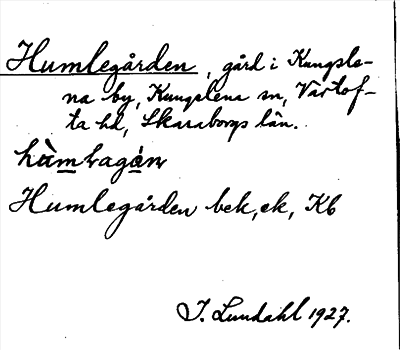 Humlegården, gård i Kungsle-
na by, Kungslena sn, Vartof-
ta hd, Skaraborgs län.
Humlegården bek, ek, Kb
I. Lundahl 1927.